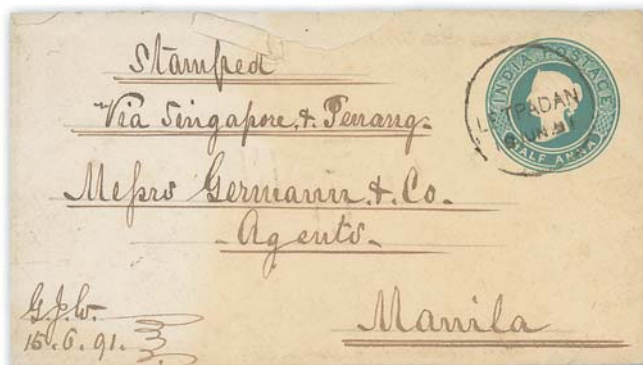 Stamped
Via Singapore. & Penang.
Messrs Germann. & Co.
Agents.
Manila
G.J.W.
15.6.91.
INDIA POSTAGE
HALF ANNA
LETPADAN